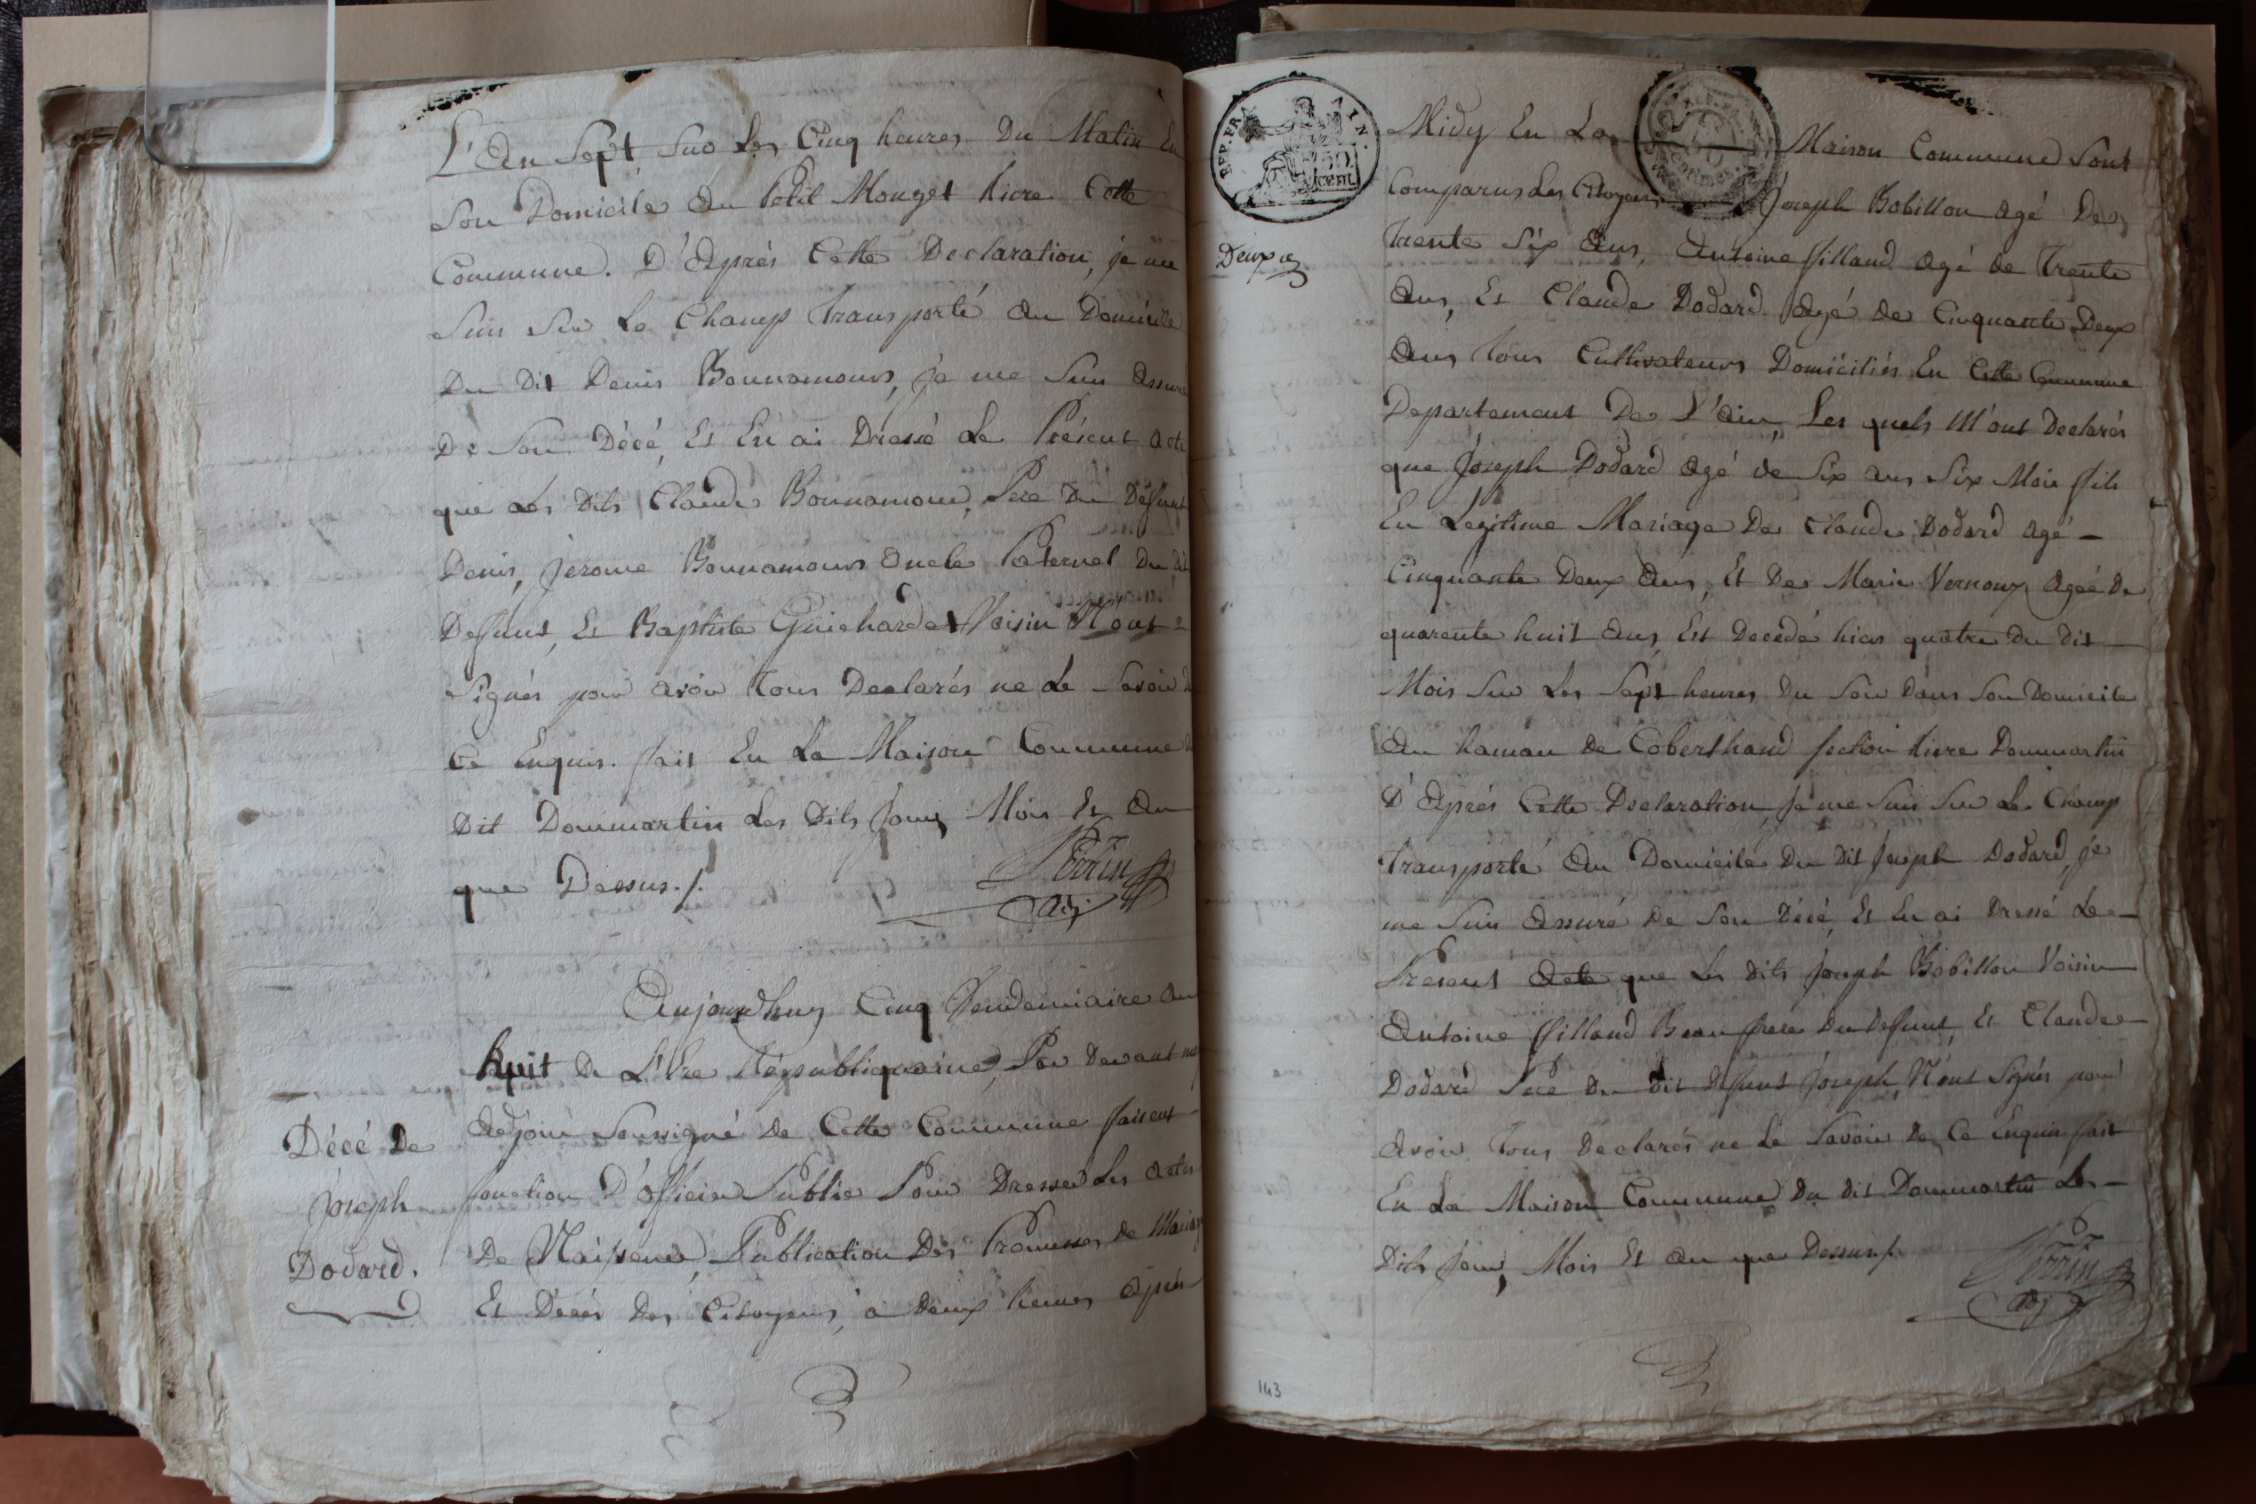 L'An Sept Sur Les Cinq heures Du Matin En
Son Domicile Au Petit Mouget hiere Cette
Commune. D'Après Cette Declaration, je me
Suis Sur Le Champ Transporté Au Domicille
Du Dit Denis Bonnamours, je me Suis Assuré
De Son Décé, Et En ai Dressé Le Présent acte
que Les Dits Claude Bonnamour, Pere Du Défunt
Denis, Jerome Bonnamours Oncle Paternel Du Dit
Defunt, Et Baptiste Guichardet Voisin N'ont
Signés pour avoir Tous Declarés ne Le Savoir De
Ce Enquis. fait En La Maison Commune Du
Dit Dommartin Les Dits Jour, Mois Et An
que Dessus./.
Perrin
Adj.
Décé De
Joseph
Dodard.
Aujourdhuy Cinq Vendemiaire An
huit De L'Ere Républiquaine, Par Devant moy
Adjoint Soussigné De Cette Commune faisent
fonction D'officier Public Pour Dresser Les actes
De Naissence, Publication Des Promesses de Mariage
Et Décés Des Citoyens, a Deux heures Après
REP. FRA. AIN.
50
cent
Deuxe
Midy En La Maison Commune Sont
Comparus Les Citoyens Joseph Bobillon Agé De
Trente Six Ans, Antoine filland Agé De Trente
Ans, Et Claude Dodard Agé De Cinquante Deux
Ans Tous Cultivateurs Domiciliés En Cette Commune
Departement De L'Ain, Les quels M'ont Declarés
que Joseph Dodard Agé de Six ans Six Mois fils
En Legitime Mariage De Claude Dodard Agé
Cinquante Deux Ans, Et De Marie Vernoux Agée De
quarente huit Ans, Est Decedé hier quatre Du Dit
Mois Sur Les Sept heures Du Soir Dans Son Domicile
Au hamau De Coberthoud Section hiere Dommartin
D'Après Cette Declaration, Je me Suis Sur Le Champ
Transporté Au Domicile Du Dit Joseph Dodard, je
me Suis Assuré De Son Décé, Et En ai Dressé Le
Present Acte que Les Dits Joseph Bobillon Voisin
Antoine filland Beau frere Du Defunt, Et Claude
Dodard Pere Du Dit Defunt Joseph, N'ont Signés pour
Avoir Tous Declarés ne Le Savoir De Ce Enquis fait
En La Maison Commune Du Dit Dommartin Les
Dits Jour, Mois Et An que Dessus/.
Perrin
Adj
143